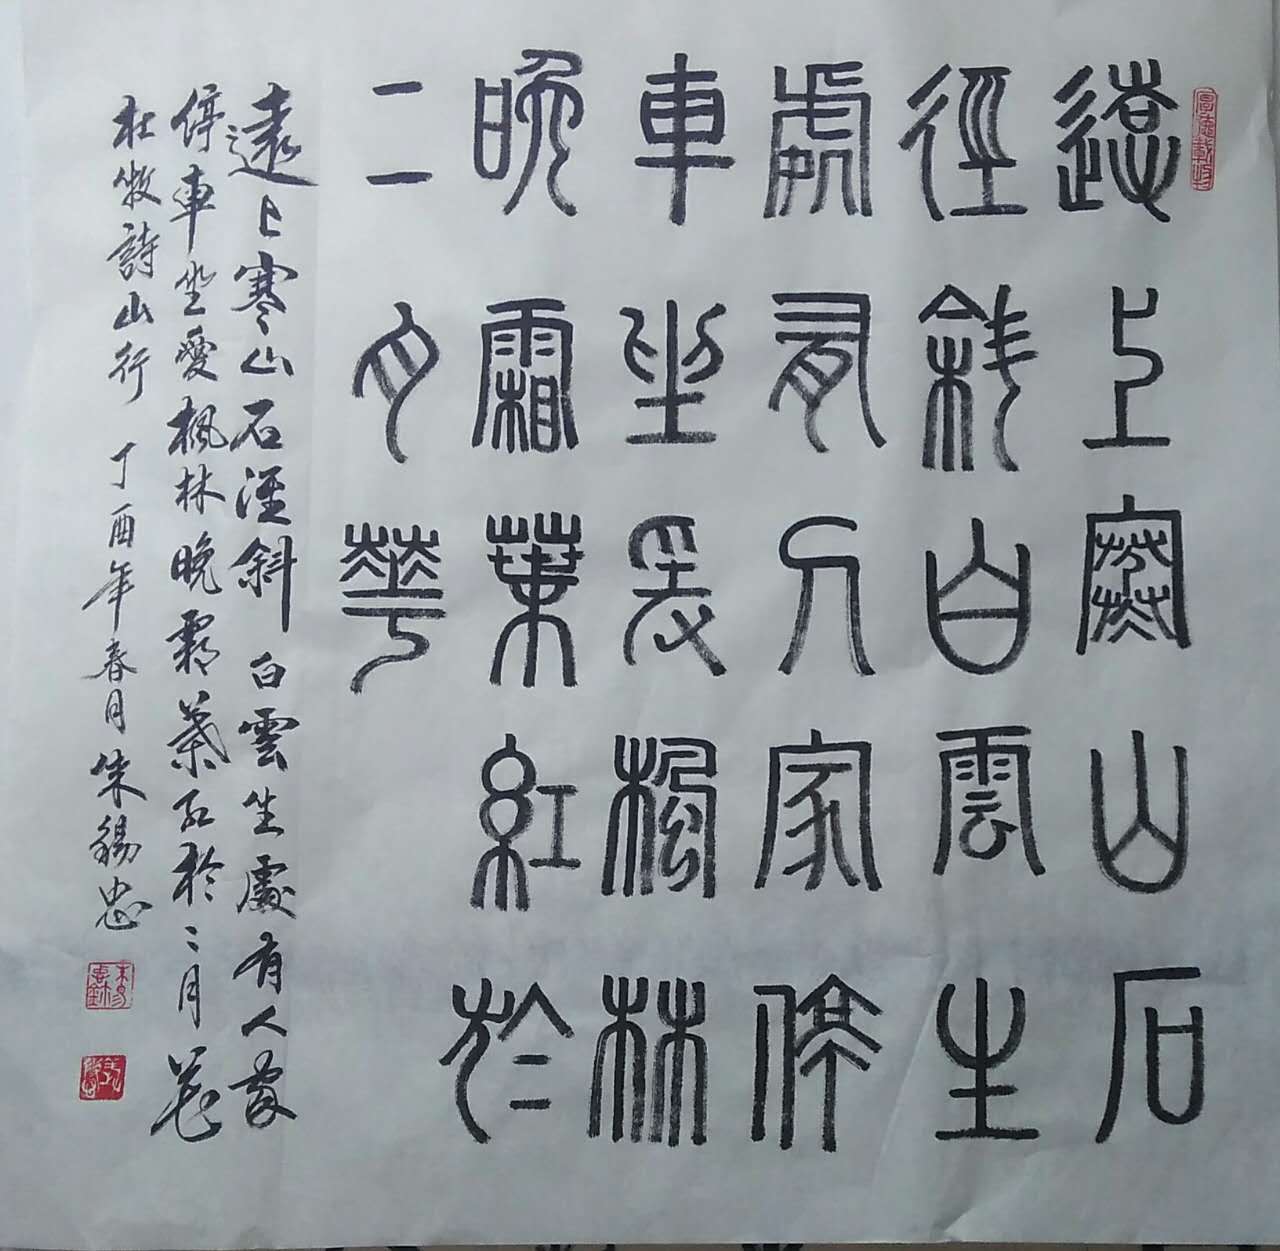 厚德載物
遠上寒山石
徑斜白雲生
處有人家停
車坐愛楓林
晚霜葉紅於
二月華
遠上寒山石徑斜白雲生處有人家
停車坐愛楓林晚霜葉紅於二月花
杜牧詩山行 丁酉年春月朱錫忠